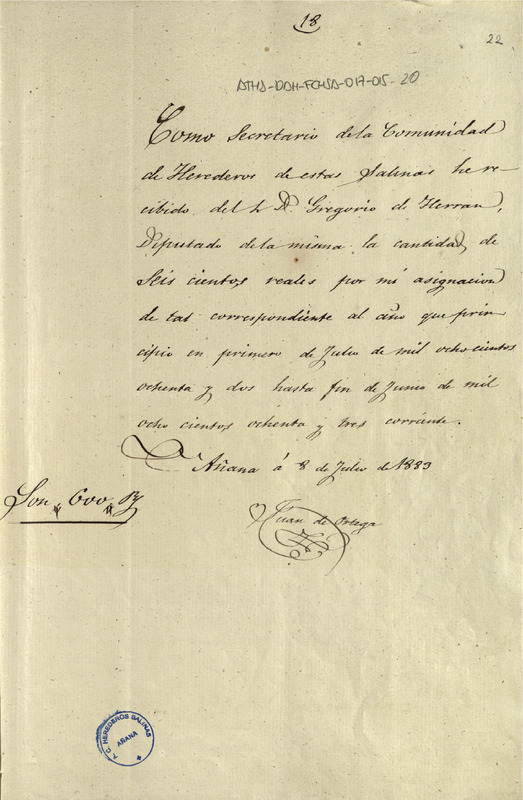 18
22
ATHA-DAH-FCHSA-017-015-20
Como Secretario de la Comunidad
de Herederos de estas Salinas he re-
cibido del Sr. Dn. Gregorio de Herran,
Diputado de la misma la cantidad de
seis cientos reales por mi asignacion
de tal correspondiente al año que prin
cipio en primero de Julio de mil ocho cientos
ochenta y dos hasta fin de Junio de mil
ocho cientos ochenta y tres corriente.
Añana á 8 de Julio de 1883
Son, 600 rs
Juan de Ortega
A.C. HEREDEROS SALINAS
AÑANA